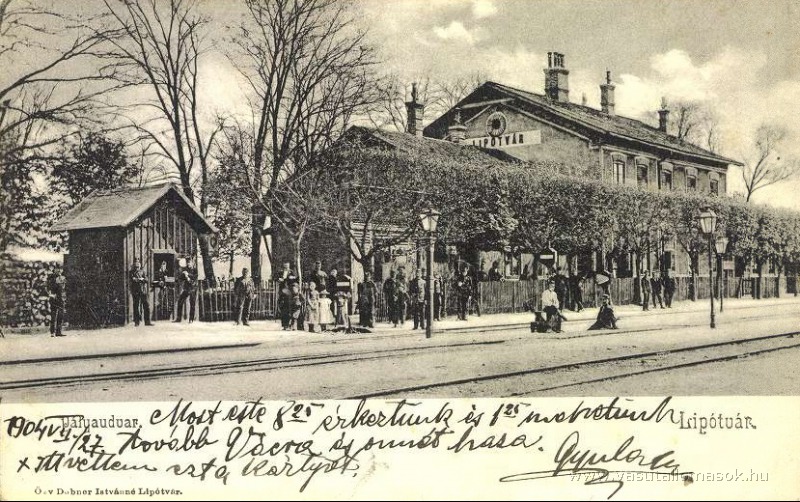 LIPÓTVÁR
Pályaudvar.
Lipótvár.
1904 VII/27
Most este 8 25 érkeztünk és 1 25 m
tovább Vácra és onnét haza.
x Itt vettem ezt a kártyát.
Gyula
Özv Dobner Istvánné Lipótvár.
www.vasutallomasok.hu